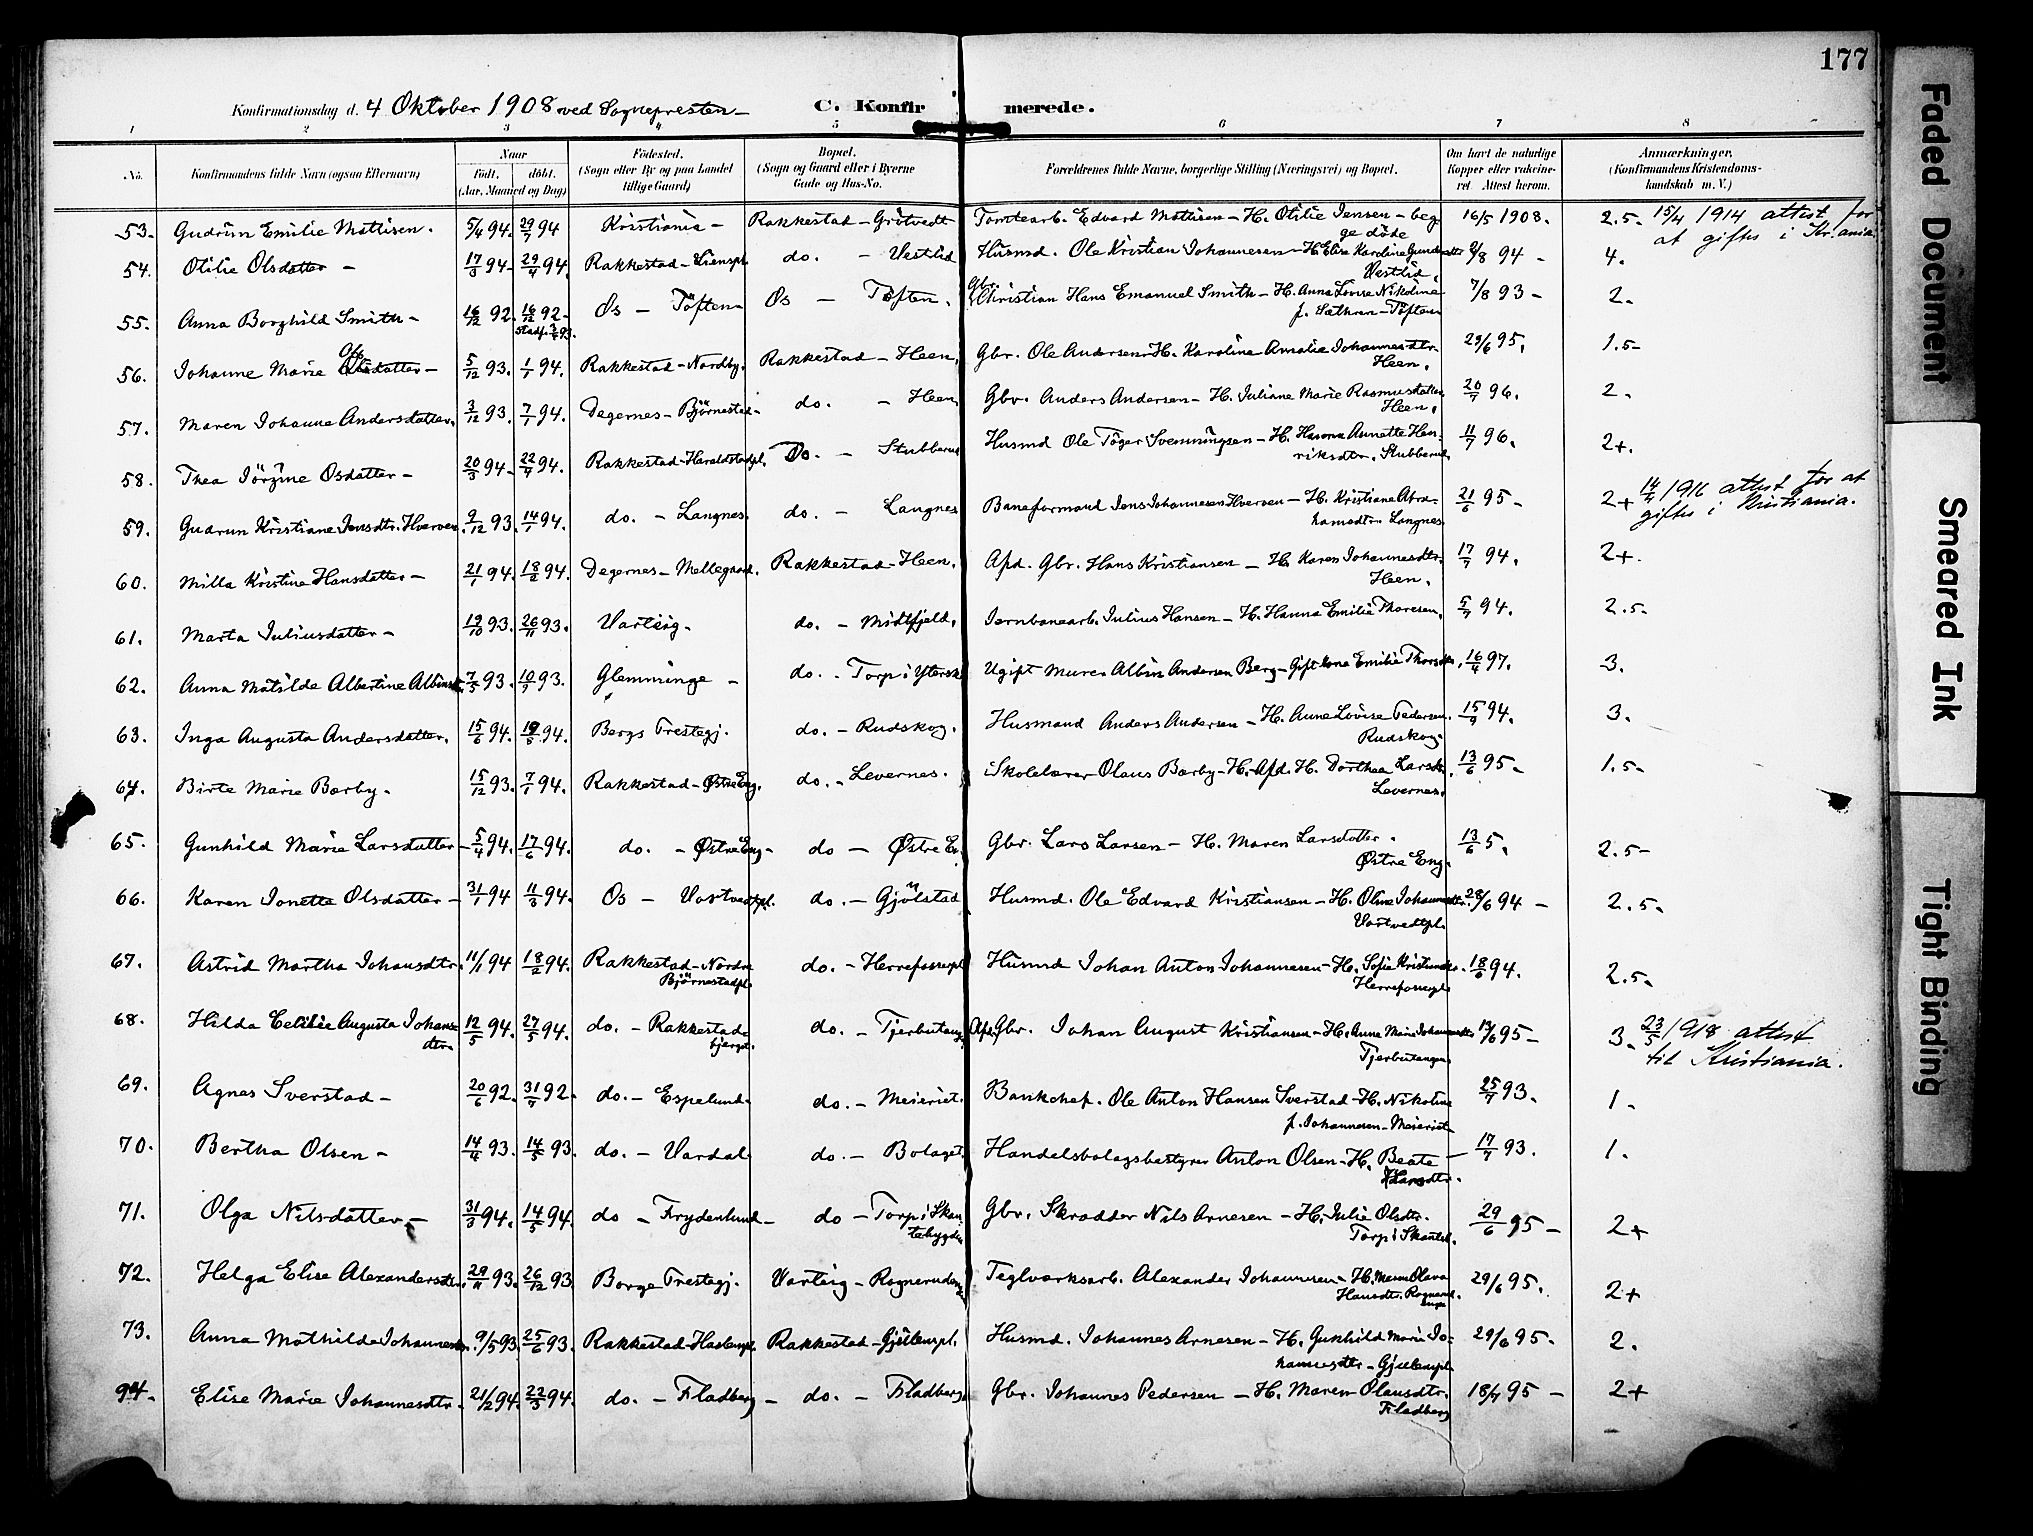 177
Konfirmationsdag d. 4 Oktober 1908 ved Sognepresten
C. Konfirmerede.
1 2 3 4 5 6 7 8
No. Konfirmandens fulde Navn (ogsaa Efternavn) Naar Født, døbt. (Aar, Maaned og Dag) Fødested. (Sogn eller By og paa Landet tillige Gaard) Bopæl. (Sogn og Gaard eller i Byerne Gade og Hus-No. Forældrenes fulde Navne, borgerlige Stilling (Næringsvei) og Bopæl. Om havt de naturlige Kopper eller vaccineret Attest herom. Anmærkninger. (Konfirmandens Kristendomskundskab m. V.)
53. Gudrun Emilie Mattisen. 5/4 94. 29/7 94 Kristiania - Rakkestad - Grötvedt Tomtearb. Edvard Mattisen - H. Otilie Jensen - begge döde 16/5 1908. 2.5- 15/4 1914 attest for at giftes i Kr.ania
54. Otilie Olsdatter - 17/3 94- 29/4 94. Rakkestad - do. - Vestlid Husmd. Ole Kristian Johannesen - H. Elise Karoline Vestlid. /8 94 - 4.
55. Anna Borghild Smith - 16/12 92. 16/12 92 - Os - Töften Os - Töften. Gbr. Christian Hans Emanuel Smith - H. Anna Lovise Nikoline f. Sæthren - Töften 7/8 93 - 2-
56. Johanne Marie Olsdatter - 5/12 93. 1/1 94. Rakkestad - Nordby. Rakkestad - Heen. Gbr. Ole Andersen - H. Karoline Amalie Johannesdtr. Heen. 29/6 95. 1.5-
57. Maren Johanne Andersdatter. 3/12 93. 7/1 94. Degernes - Björnestad - do. - Heen Gbr. Anders Andersen - H. Juliane Marie Rasmusdatter Heen. 20/7 96. 2.
58. Thea Jörgine Osdatter - 20/3 94- 22/4 94. Rakkestad - Haraldstadpl. Do. - Stubberud Husmd Ole Töger Svenningsen - H. Hanna Annette Henriksdtr. Stubberud 11/7 96. 2+.
59. Gudrun Kristiane Jensdtr. Hverven 9/12 93. 14/1 94. do. - Langnes. do. - Langnes Baneformand Jens Johannesen Hverven - H. Kristiane Abrahamsdtr. Langnes 21/6 95 - 2+ 14/4 1916 attest for at giftes i Kristiania.
60. Milla Kristine Hansdatter - 21/1 94. 18/2 94. Degernes - Mellegaard. Rakkestad - Heen. Afd. Gbr. Hans Kristiansen - H. Karen Johannesdtr. Heen. 17/7 94. 2+.
61. Marta Juliusdatter - 19/10 93. 26/11 93. Varteig. do. - Midtfjeld. Jernbanearb. Julius Hansen - H. Hanna Emilie Thoresen. 5/7 94. 2.5-
62. Anna Matilde Albertine 7/5 93. 10/9 93. Glemminge - do. - Torp i Ytersk. Ugift Murer Albin Andersen Berg - Gift kone Emilie 16/4 97. 3.
63. Inga Augusta Andersdatter. 15/6 94. 94. Bergs Prestegj. do. - Rudskog. Husmand Anders Andersen - H. Anne Lovise Pedersen. Rudskog. 15/9 94. 3.
64. Birte Marie Bærby - 15/12 93. 7/1 94. Rakkestad - Østre Eng. do. - Levernes. Skolelærer Olaus Bærby - H. Afd. H. Dorthea Larsdtr. Levernes. 13/6 95 - 1.5-
65. Gunhild Marie Larsdatter - 5/4 94. 17/6 94. do. - Østre Eng - do - Østre E. Gbr. Lars Larsen - H. Maren Larsdatter. Østre Eng. 13/6 5. 2.5-
66. Karen Jonette Olsdatter - 31/1 94 11/3 94. Os - Vortvedtpl. do. - Gjölstad Husmd. Ole Edvard Kristiansen - H. Oline Johannesdtr. Vortvedtpl. 28/6 94 - 2.5.
67. Astrid Martha Johansdtr. 11/1 94 18/2 94. Rakkestad - Nordre Björnestadpl. do. - Herrefossepl Husmd Johan Anton Johannesen - H. Sofie Herrefossepl 18/6 94. 2.5.
68. Hilda Augusta Johansdtr. 12/5 94. 27/5 94. do. - Rakkestadbjerget. do. - Tjerbutangen Afd. Gbr. Johan August Kristiansen - H. Anne Marie Johannesdtr Tjerbutangen 19/6 95 - 3. 23/5 1918 attest til Kristiania.
69. Agnes Sverstad - 20/6 92. 31/7 92. do. - Espelund. do. - Meieriet. Bankchef. Ole Anton Hansen Sverstad - H. Nikoline f. Johannesen - Meieriet 25/7 93. 1.
70. Bertha Olsen - 14/4 93. 14/5 93. do. - Vardal do. - Bolaget Handelsbolagsbestyrer Anton Olsen - H. Beate 17/7 93. 1.
71. Olga Nilsdatter - 31/3 94. 14/5 94. do - Frydenlund - do - Torp i Skantebygden Gbr. Skrædder Nils Arnesen - H. Julie Olsdtr. Torp i Skanteb. 29/6 95 - 2+
72. Helga Elise Alexandersdtr. 29/11 93. 26/12 93 Borge Prestegj. Varteig - Teglværksarb. Alexander Johannesen - H. Maren Olava Hansdtr. 29/6 95. 2+
73. Anna Mathilde Johannesdtr. 9/5 93. 25/6 93. Rakkestad - Rakkestad - Gjellempl. Husmd. Johannes Arnesen - H. Gunhild Marie Johannesdtr - Gjellempl 29/6 95. 2.
94. Elise Marie Johannesdtr. 21/2 94. 22/3 94. do. - Fladberg - do. - Fladberg Gbr. Johannes Pedersen - H. Maren Olausdtr. Fladberg 18/7 95 - 2+
Faded Document
Smeared Ink
Tight Binding